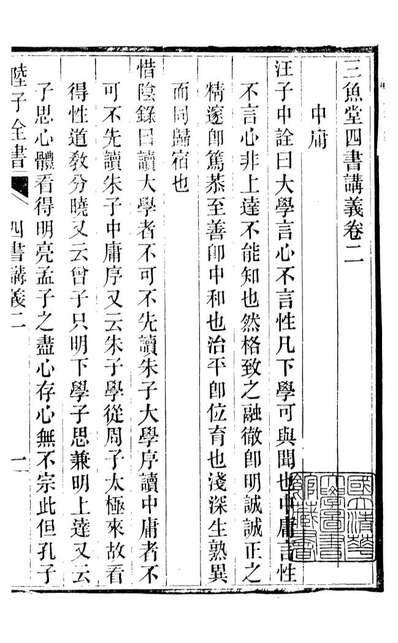 三魚堂四書講義卷二
中庸
汪子中詮曰大學言心不言性凡下學可與聞也中庸言性
不言心非上達不能知也然格致之融徹卽明誠誠正之
精邃卽篤恭至善卽中和也治平卽位育也淺深生熟異
而同歸宿也
惜陰錄曰讀大學者不可不先讀朱子大學序讀中庸者不
可不先讀朱子中庸序又云朱子學從周子太極來故看
得性道敎分曉又云曾子只明下學子思兼明上達又云
子思心體看得明亮孟子之盡心存心無不宗此但孔子
陸子全書
四書講義二
一
國立清華
大學圖書
館藏書